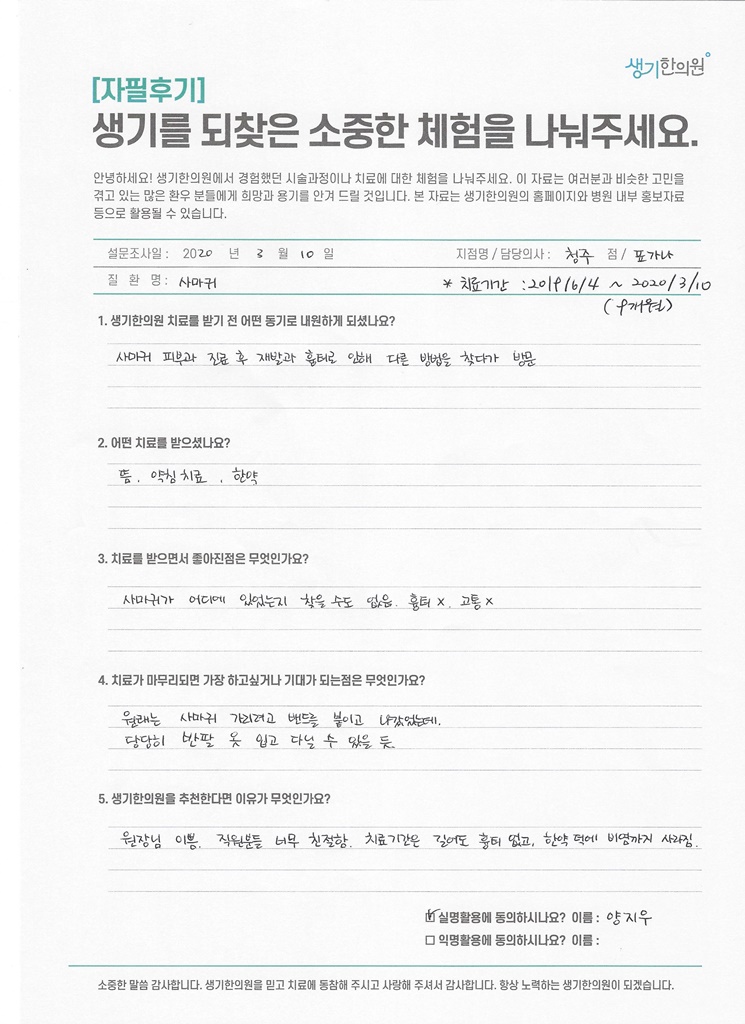 생기한의원
[자필후기]
생기를 되찾은 소중한 체험을 나눠주세요.
안녕하세요! 생기한의원에서 경험했던 시술과정이나 치료에 대한 체험을 나눠주세요. 이 자료는 여러분과 비슷한 고민을
겪고 있는 많은 환우 분들에게 희망과 용기를 안겨 드릴 것입니다. 본 자료는 생기한의원의 홈페이지와 병원 내부 홍보자료
등으로 활용될 수 있습니다.
설문조사일 : 2020 년 3 월 10 일 지점명 / 담당의사 : 청주 점 / 표가나
질 환 명 : 사마귀 * 치료기간 : 2019/6/4 ~ 2020/3/10
(9개월)
1. 생기한의원 치료를 받기 전 어떤 동기로 내원하게 되셨나요?
사마귀 피부과 진료 후 재발과 흉터로 인해 다른 방법을 찾다가 방문
2. 어떤 치료를 받으셨나요?
뜸, 약침치료, 한약
3. 치료를 받으면서 좋아진점은 무엇인가요?
사마귀가 어디에 있었는지 찾을 수도 없음. 흉터 x, 고통 x
4. 치료가 마무리되면 가장 하고싶거나 기대가 되는점은 무엇인가요?
원래는 사마귀 가리려고 밴드를 붙이고 나갔었는데,
당당히 반팔 옷 입고 다닐 수 있을 듯.
5. 생기한의원을 추천한다면 이유가 무엇인가요?
원장님 이쁨. 직원분들 너무 친절함. 치료기간은 길어도 흉터 없고, 한약 덕에 비염까지 사라짐.
☑ 실명활용에 동의하시나요? 이름 : 양지우
☐ 익명활용에 동의하시나요? 이름 :
소중한 말씀 감사합니다. 생기한의원을 믿고 치료에 동참해 주시고 사랑해 주셔서 감사합니다. 항상 노력하는 생기한의원이 되겠습니다.